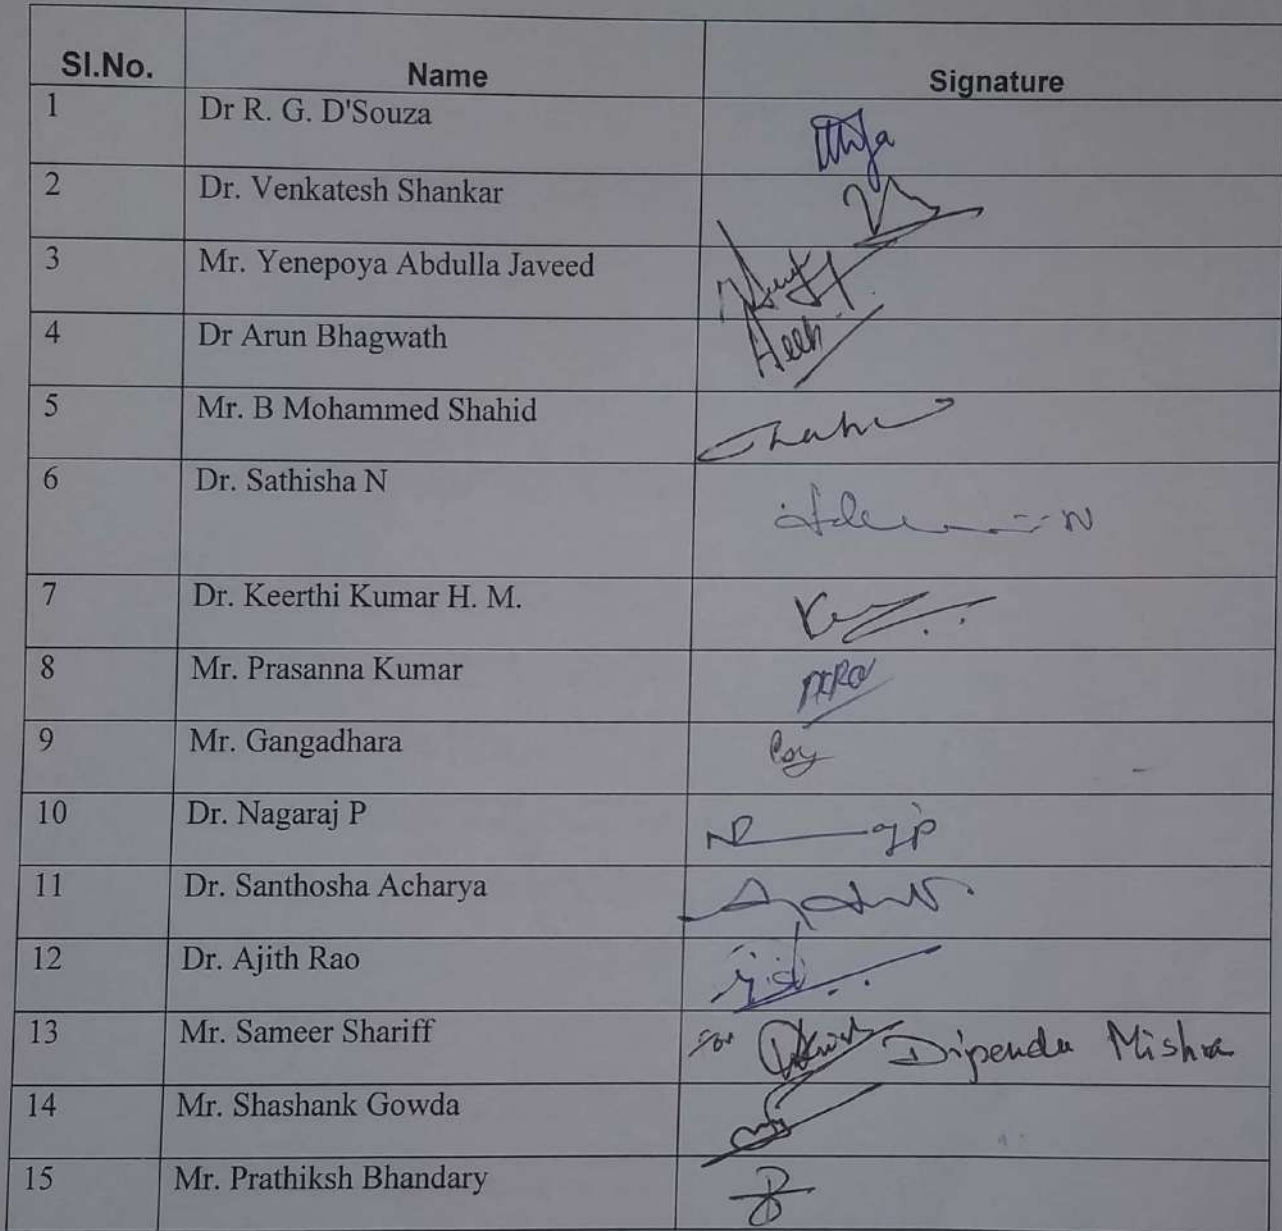 Sl.No. Name Signature
1 Dr R. G. D'Souza
2 Dr. Venkatesh Shankar
3 Mr. Yenepoya Abdulla Javeed
4 Dr Arun Bhagwath
5 Mr. B Mohammed Shahid
6 Dr. Sathisha N
7 Dr. Keerthi Kumar H. M.
8 Mr. Prasanna Kumar
9 Mr. Gangadhara
10 Dr. Nagaraj P
11 Dr. Santhosha Acharya
12 Dr. Ajith Rao
13 Mr. Sameer Shariff for Dipendu Mishra
14 Mr. Shashank Gowda
15 Mr. Prathiksh Bhandary